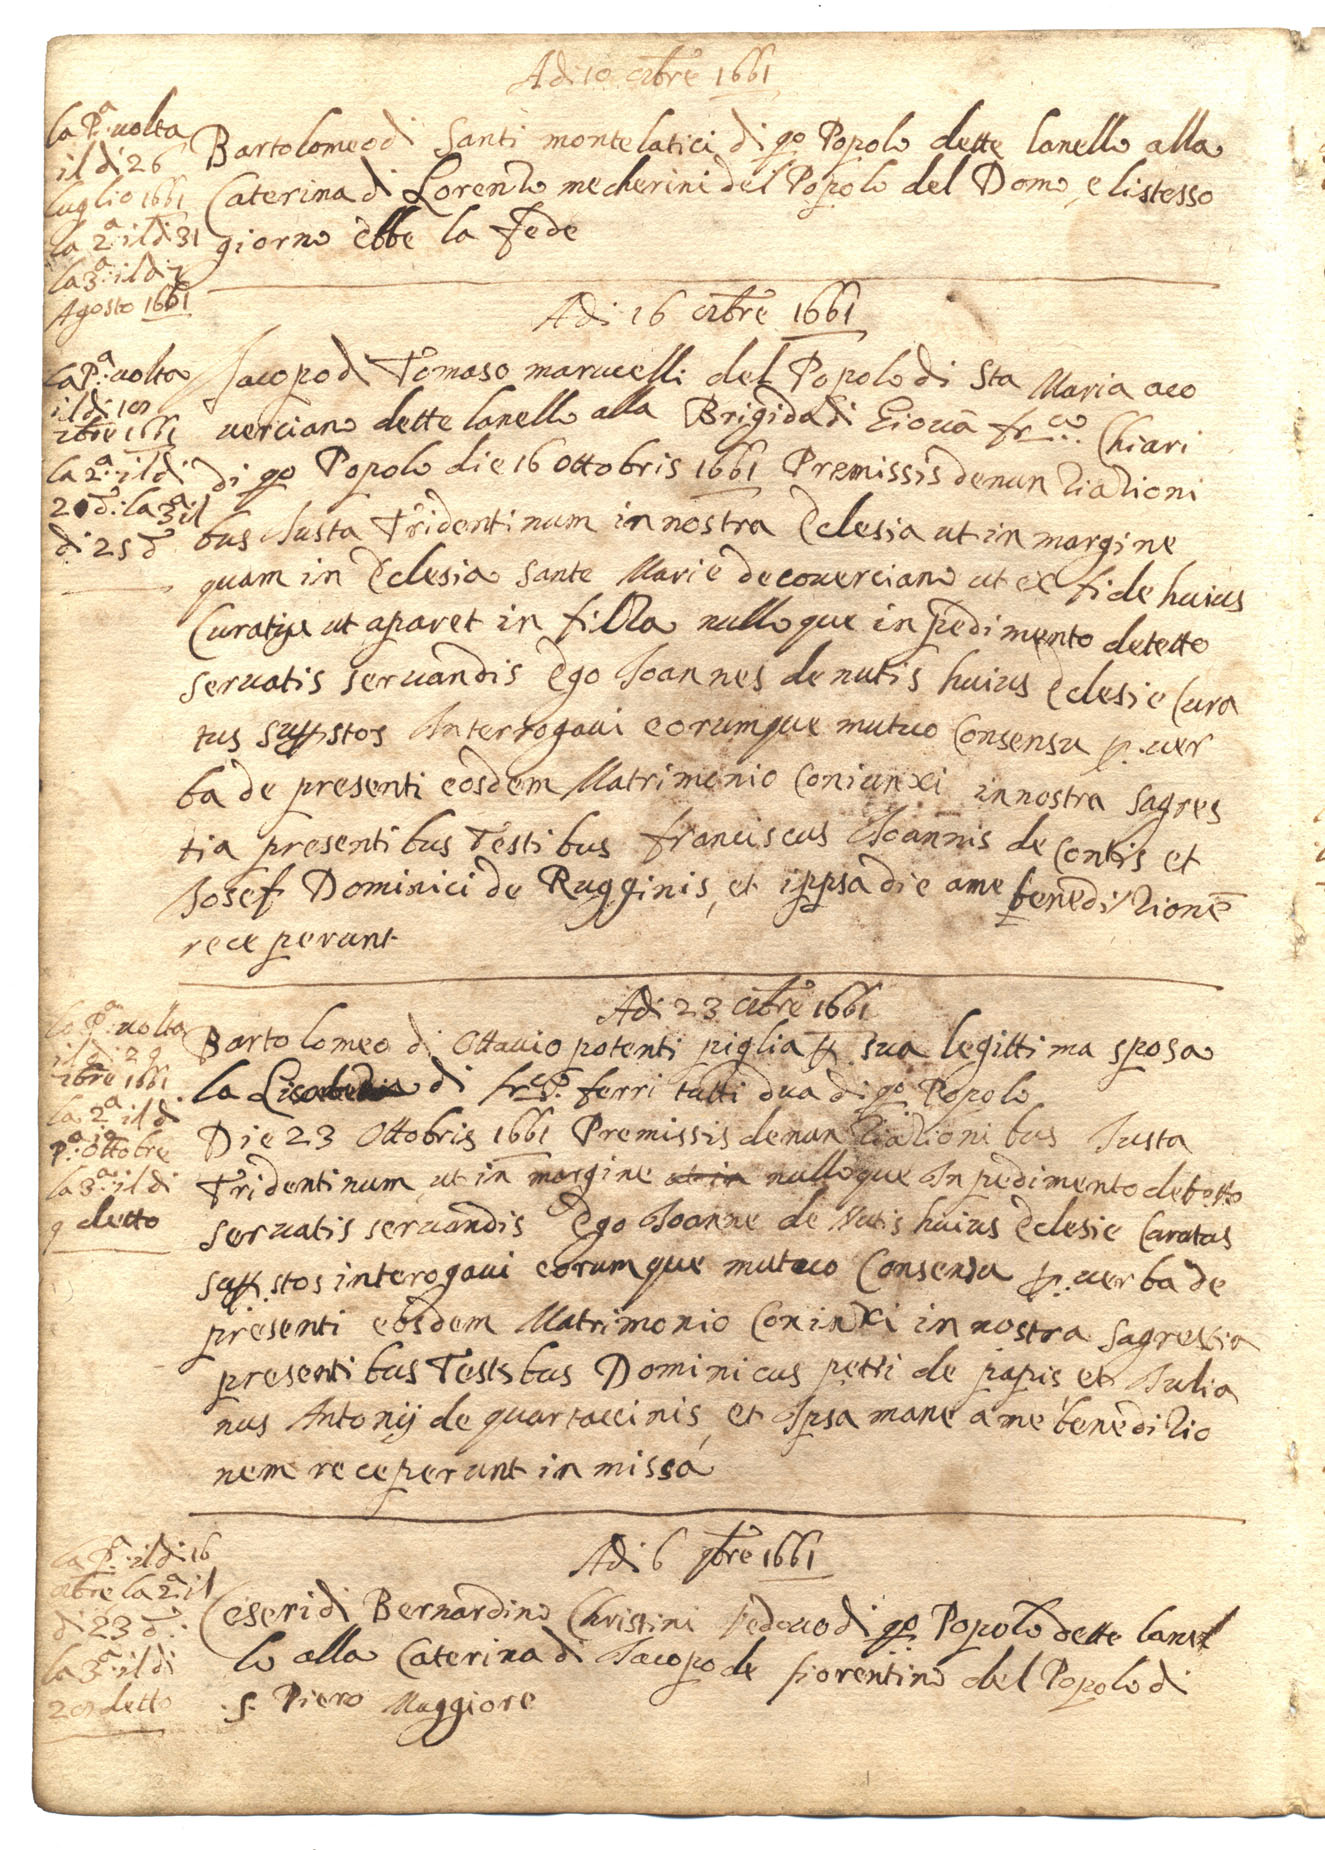 Adi 10 8bre 1661
la Pa. uolta
il di 26
luglio 1661
la 2a il di 31
la 3a. il di 7
Agosto 1661
Bartolomeo di Santi montelatici di qo Popolo dette lanello alla
Caterina di Lorenzo mecherini del Popolo del Domo, e listesso
giorno ebbe la fede
Adi 16 8bre 1661
la Pa. uolta
il di
7bre 1661
la 2a. il di
d: la 3a il
di 25 d
Jacopo di Tomaso marucelli del Popolo di Sta Maria aco
uerciano dette lanello alla Brigida di Giouā frco. Chiari
di qo Popolo die 16 Ottobris 1661 Premissis denunziazioni
bus Iusta Tridentinum in nostra Eclesia ut in margine
quam in Eclesia Sante Marie de couerciano ut ex fide huius
Curati ut aparet in filza nulloque inpedimento detetto
seruatis seruandis Ego Joannes de nutis huius Eclesie Cura
tus suppstos Interrogaui eorumque mutuo Consensu p. uer
ba de presenti eosdem Matrimonio Coniunxi in nostra sagres
tia presentibus Testibus franciscus Joannis de Contis et
Josef Dominici de Rugginis, et ippsa die a me benedizionē
receperunt
Adi 23 8bre 1661
la Pa. uolta
il di 29
7bre 1661
la 2a. il di
Pa. Ottobre
la 3a. il di
9 detto
Bartolomeo di Ottauio potenti piglia p sua legittima sposa
la di frco. ferri tutti dua di qo Popolo
Die 23 Ottobris 1661 Premissis denunziazionibus Iusta
Tridentinum, ut in margine ut in nulloque Inpedimento detetto
seruatis seruandis Ego Joanne de Nutis huius Eclesie Curatus
suppstos interogaui eorumque mutuo Consensu p. uerba de
presenti eosdem Matrimonio Coninxi in nostra sagrestia
presentibus Testibus Dominicus petri de papis, et Julia
nus Antonij de quartaccinis, et Ipsa mane a me benedizio
nem receperunt in missa
Adi 6 9bre 1661
la Pa. il di 16
8bre la 2a il
di 23 d:
la 3a. il di
detto
Ceseri di Bernardino Christini Vedouo di qo Popolo dette lanel
lo alla Caterina di Jacopo de fiorentino del Popolo di
S. Piero Maggiore